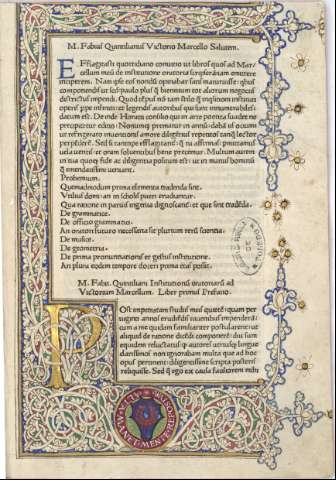 M. Fabius Quintilianus Victorio Marcello Salutem.
EFflagitasti quotidiano conuitio ut libros quos ad Mar-
cellum meũ de institutione oratoria scripserãm
inciperem. Nam ipse eos nondũ opinabar satis maturuisse: qbus
componendis ut scis paulo plus q̃ biennium tot alioqui negociis
districtus impendi. Quod tẽpus nõ tam stilo q̃
operis ppe infiniti: et legendis autoribus qui sunt innumerabiles:
datum est. De inde Horatii consilio qui in arte poetica suadet ne
precipitetur editio: Nonumq; prematur in annũ: dabã iis ocium
ut refrigerato inuentionis amore diligẽtius repetitos tanq̃ lector
perpẽderẽ. Sed si tantope efflagitant: q̃ tu affirmas: permittamus
uela uentis: et oram soluentibus bene precemur. Multum autem
in tua quoq; fide ac diligentia positum est: ut in manus hominũ
q̃ emendatissime ueniant.
Prohemium.
Quemadmodum prima elementa tradenda sint.
Vtilius domi: an in scholis pueri erudiantur.
Qua ratione in paruis ingenia dignoscant: et que sint tradẽda.
De grammatica.
De officio grammatici.
An oratori futuro necessaria sit plurium rerũ scientia.
De musice.
De geometria.
De prima pronuntiationis et gestus institutione.
An plura eodem tempore doceri prima etas possit.
M. Fabii. Quintiliani Institutionũ oratoriarũ ad
Victorium Marcellum. Liber primus Prefatio.
POst impetratam studiis meis quietẽ: quam per
uiginti annos erudiẽdis iuuenibus impenderã:
cum a me quidam familiariter postularent: ut
aliquid de ratione dicẽdi componerẽ: diu sum
equidem reluctatus: q̃ autores utriusq; lingue
clarissimos non ignorabam multa que ad hoc
opus pertinerent diligentissime scripta posteris
reliquisse. Sed q̃ ego ex causa faciliorem mihi